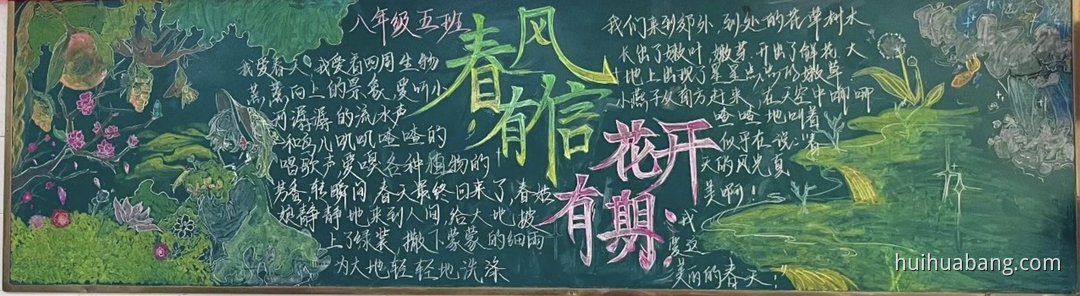 八年级五班
春风有信
花开有期
我爱春天,我爱看四周生物
蒸蒸向上的景象,爱听小
河潺潺的流水声
和鸟儿叽叽喳喳的
唱歌声,爱嗅各种植物的
芳香,转瞬间,春天最终回来了,春姑
娘静静地来到人间,给大地披
上了绿装,撒下蒙蒙的细雨
为大地轻轻地洗涤
我们来到郊外,到处的花草树木
长出了嫩叶,嫩芽,开出了鲜花,大
地上出现了星星点点的嫩草
小燕子从南方赶来,在天空中唧唧
喳喳地叫着
似乎在说:春
天的风光真
美啊!
我
爱这
美丽的春天!
huihuabang.com